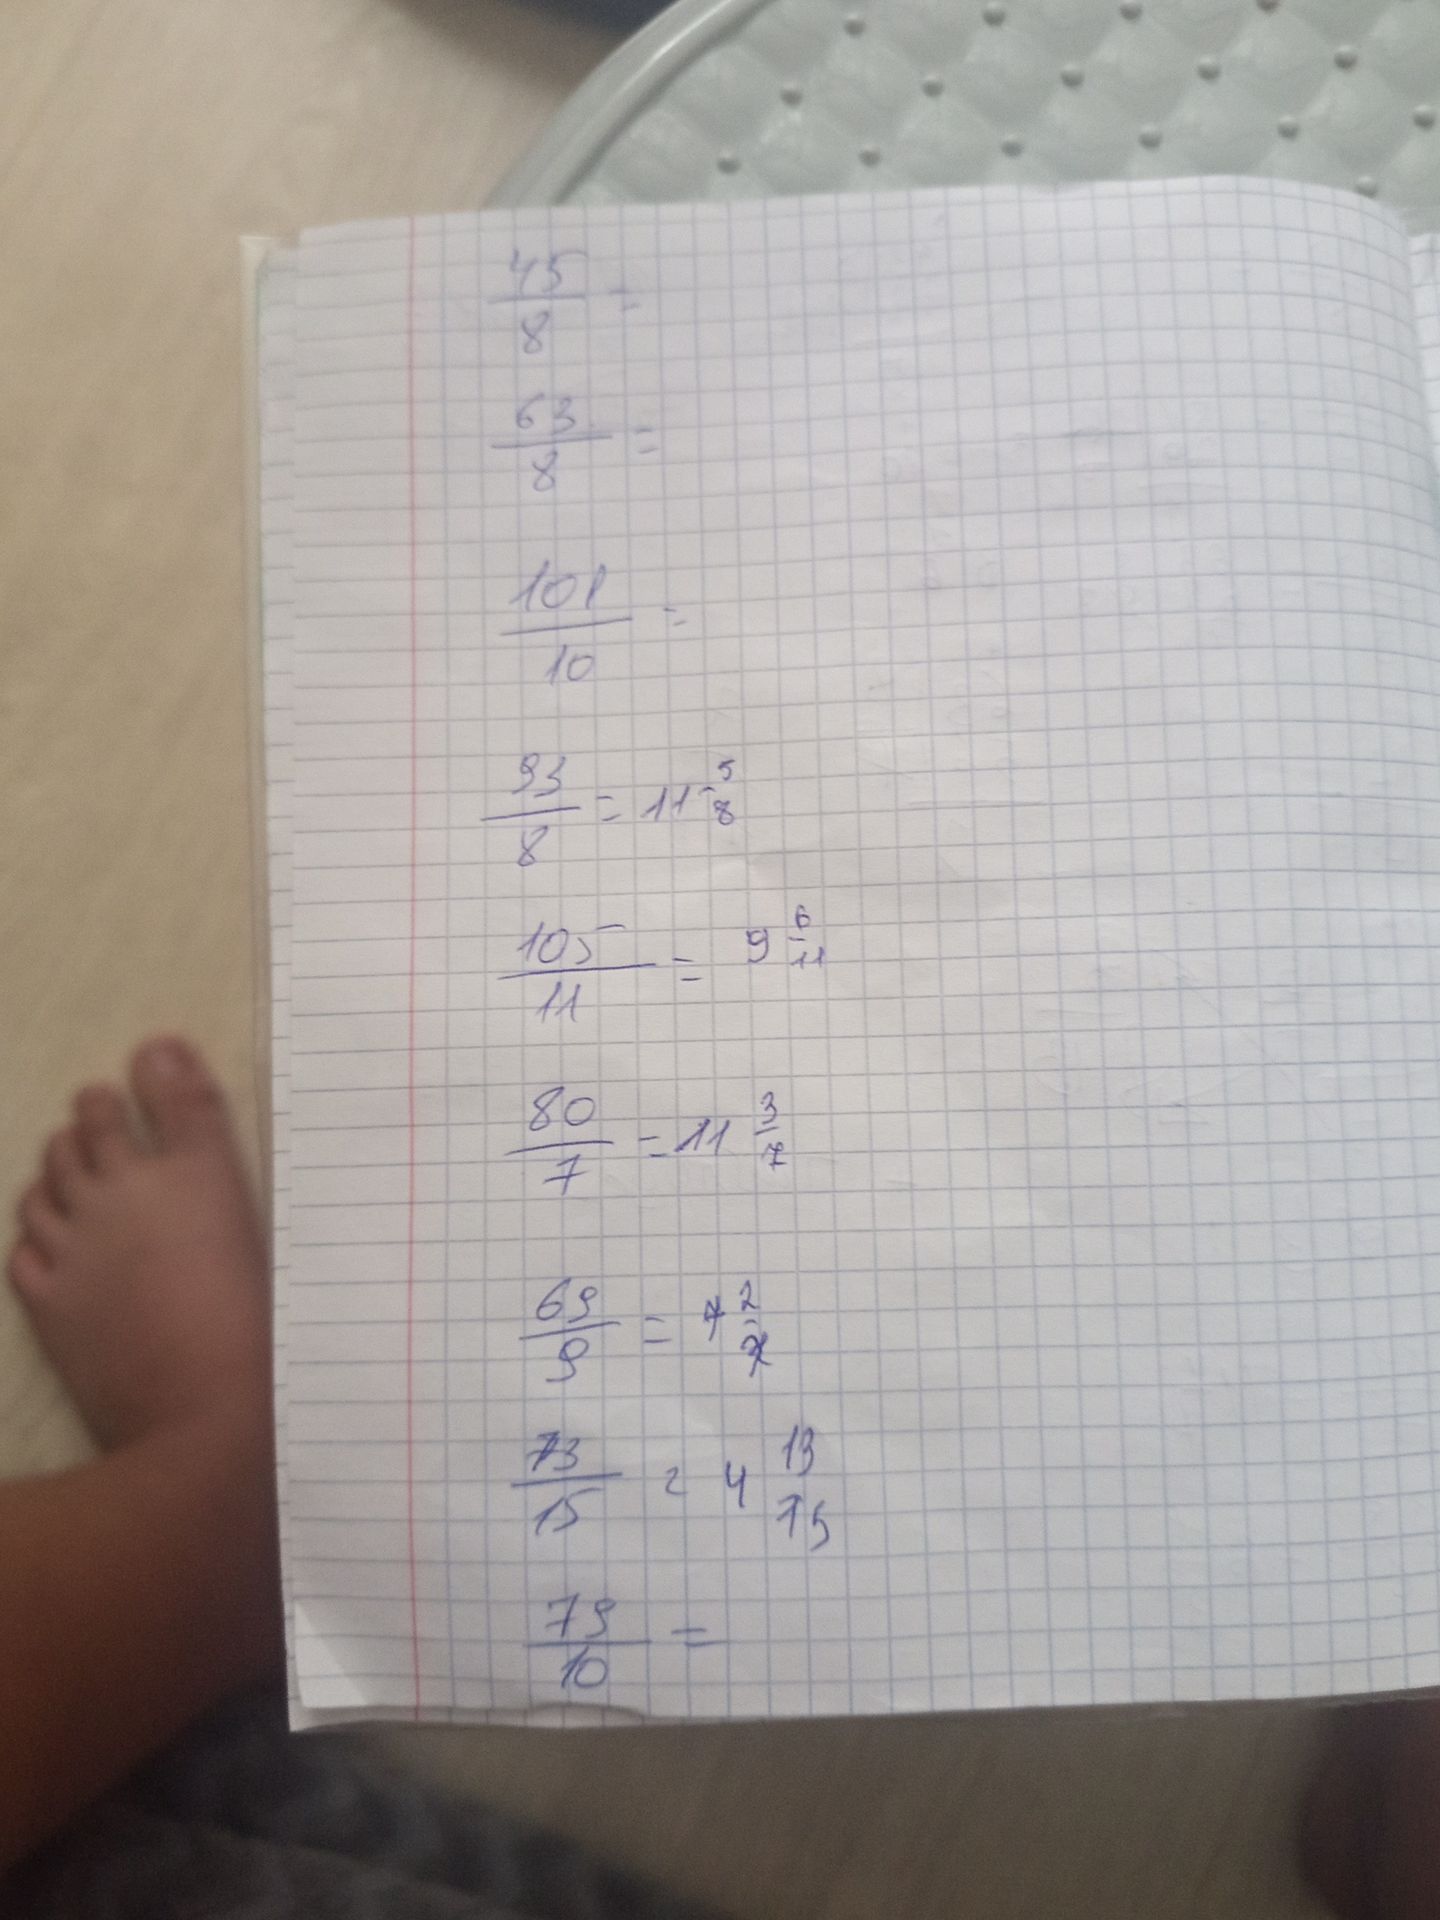 45/8 =
63/8 =
101/10 =
93/8 = 11 5/8
105/11 = 9 6/11
80/7 = 11 3/7
69/9 = 7 2/
73/15 = 4 13/15
79/10 =